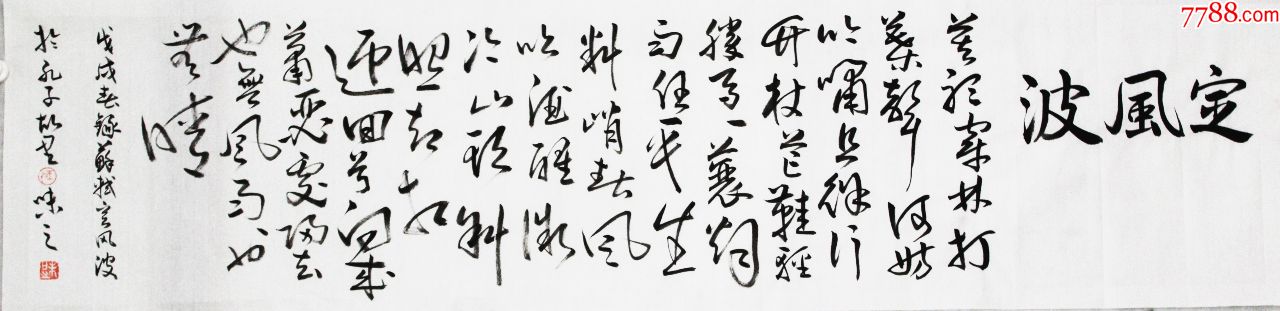 7788.com
定風波
莫聽穿林打
葉聲何妨
吟嘯且徐行
竹杖芒鞋輕
勝馬一蓑烟
雨任平生
料峭春風
吹酒醒微
冷山頭斜
照却相
迎回首向来
蕭瑟處歸去
也無風雨也
無晴
戊戌春錄蘇軾定風波
於孔子故里 味之